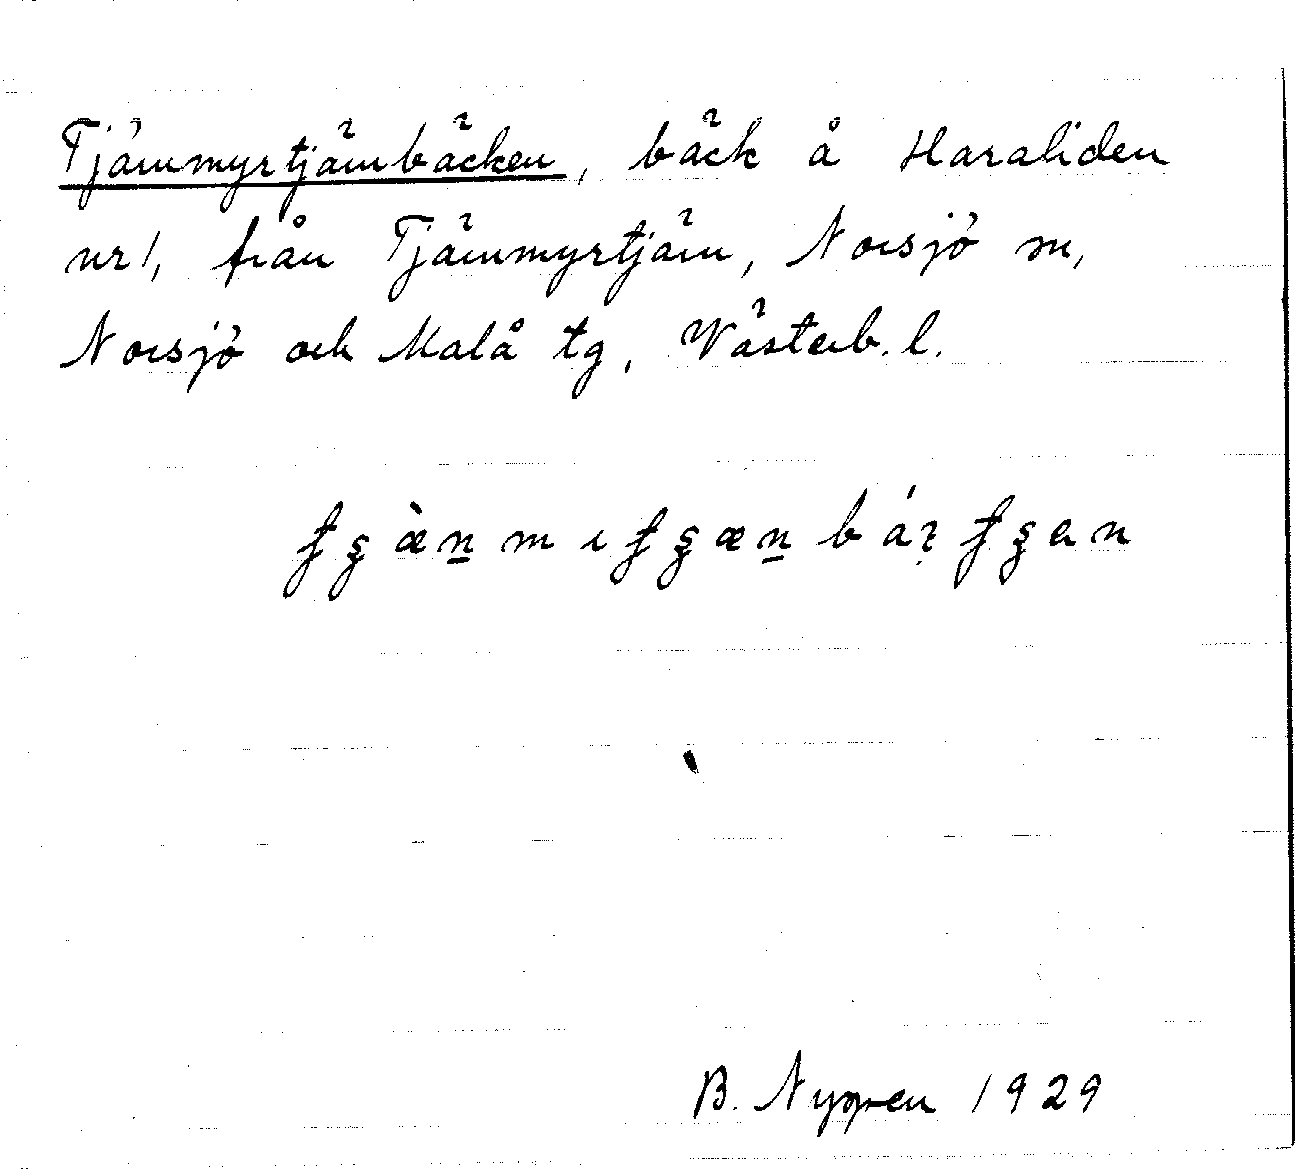 Tjärnmyrtjärnbäcken, bäck å Haraliden
nr 1, från Tjärnmyrtjärn, Norsjö sn,
Norsjö och Malå tg, Västerb. l.
B. 1929